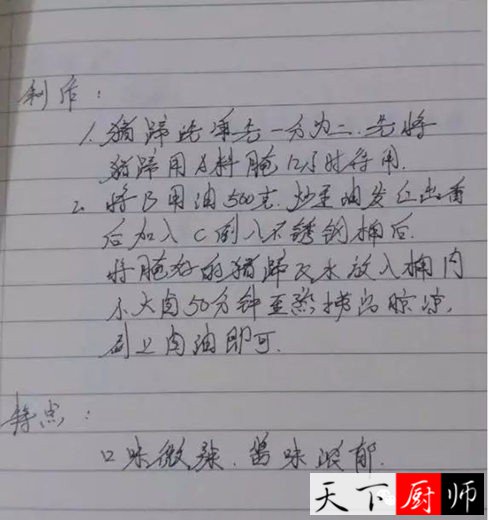 制法:
1. 猪蹄洗净去一分为二. 先将
猪蹄用A料腌12小时待用.
2. 将B用油500克. 炒至油发红出香
后加入C倒入不锈钢桶后.
将腌好的猪蹄及水放入桶内
小火卤50分钟至熟捞出晾凉,
刷上卤油即可.
特点:
口味微辣. 酱味浓郁.
天下厨师